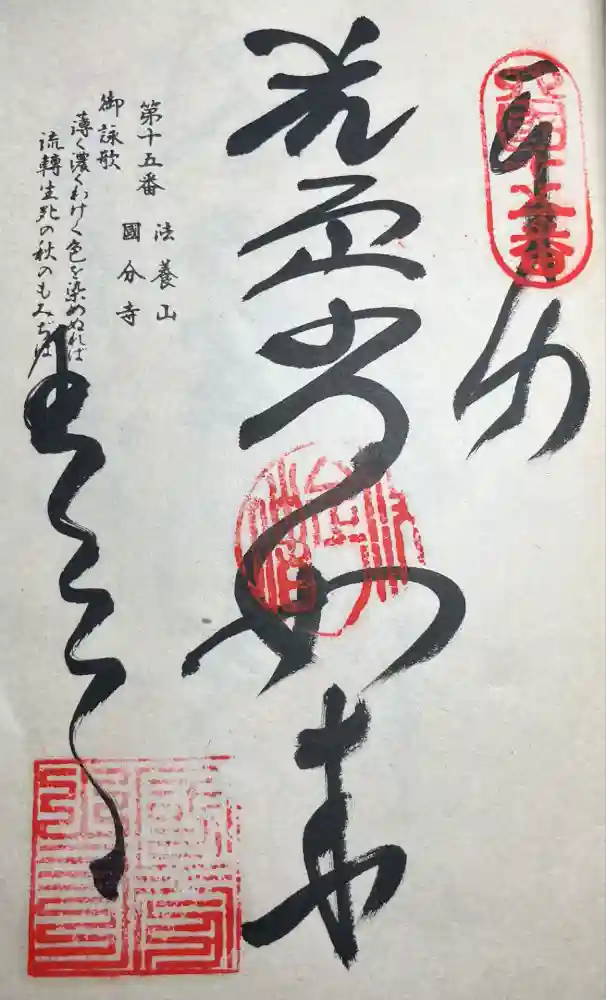 奉納
四國十五番
薬師如来
第十五番 法養山
國分寺
御詠歌
薄く濃くわけ〱色を染めぬれば
流轉生死の秋のもみぢば